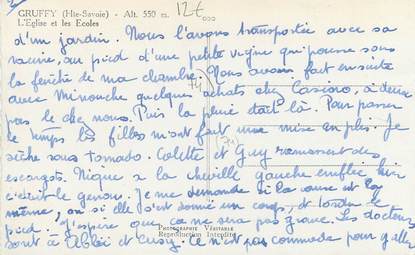 GRUFFY (Hte-Savoie) - Alt. 550 m.
L'Eglise et les Ecoles
12€
d'un jardin. Nous l'avons transportée avec sa
racine, au pied d'une petite vigne qui pousse sous
la fenêtre de ma chambre. Nous avons fait ensuite
avec Minouche quelques achats chez Casino, à deux
pas de chez nous. Puis la pluie était là. Pour passer
le temps les filles m'ont fait une mise en plis. Je
sèche sous tornado. Colette et Guy ramassent des
escargots. Nique a la cheville gauche enflée, hier
c'était le genou. Je me demande si la cause est la
même, ou si elle s'est donné un coup, et tordu le
pied. J'espère que ça ne sera pas grave. Les docteurs
sont à Albi et Cusy. Ce n'est pas commode pour y aller
PHOTOGRAPHIE VÉRITABLE
Reproduction Interdite